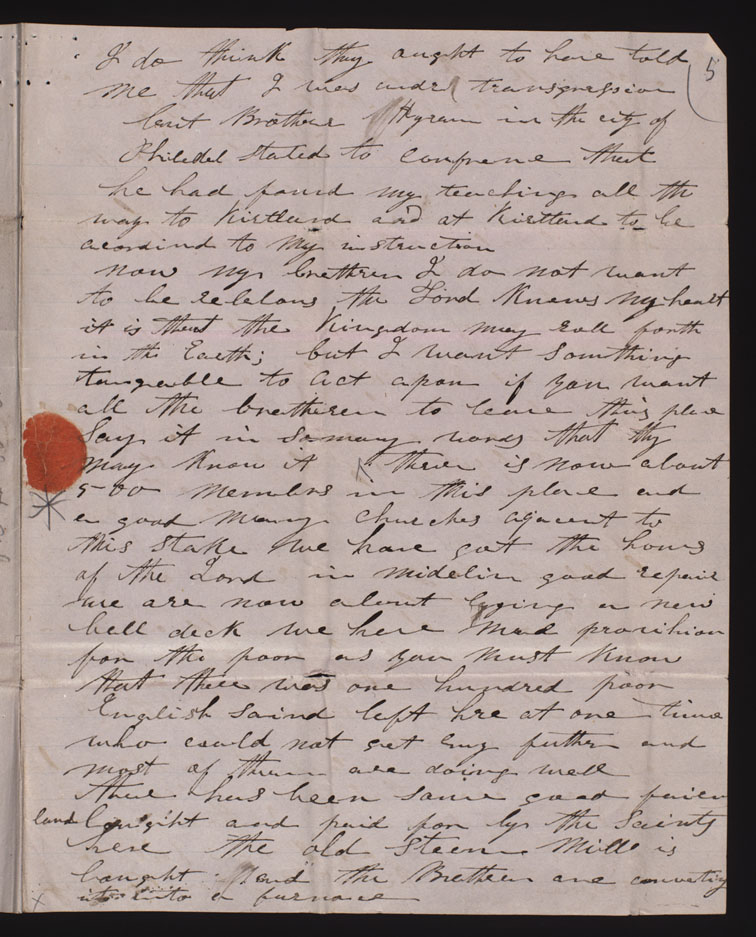 5
I do think they aught to have told
me that I was under transgression
but Brother Hyram in the city of
Philedel stated to confrene that
he had found my teachings all the
way to Kirtland and at Kirtland to be
acordind to my instruction
now my brethren I do not want
to be rebelous the Lord knows my heart
it is that the Kingdom may roll forth
in the Earth; but I want something
tangeable to act apon if you want
all the breatheren to leave this place
Say it in so many words that thy
may know it there is now about
500 members in this place and
a good many churches ajacent to
this stake we have got the hous
of the Lord in midelin good repair
we are now about lying a new
bell deck we have mad provihion
for the poor as you must know
that there was one hundred poor
English saind left hre at one time
who could not get any futher and
most of them are doing well
there has been some good
land bought and paid for by the Saints
here the old Steem Mill is
bought and the Brethern are converting
it into a furnace